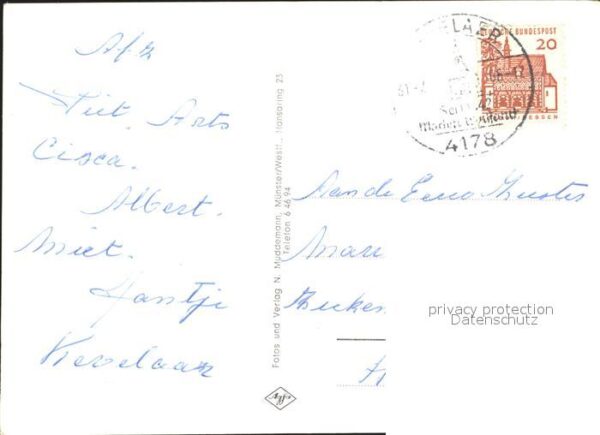 Afz
Piet Arts
Cisca.
Albert.
Miet.
Hantje
Kevelaar
Fotos und Verlag N. Muddemann, Münster/Westf., Hansaring 23
Telefon 6 46 94
Agfa
ELAER
4178
DEUTSCHE BUNDESPOST
20
Aan de Eerw Zuster
Mar
Zieken
privacy protection
Datenschutz